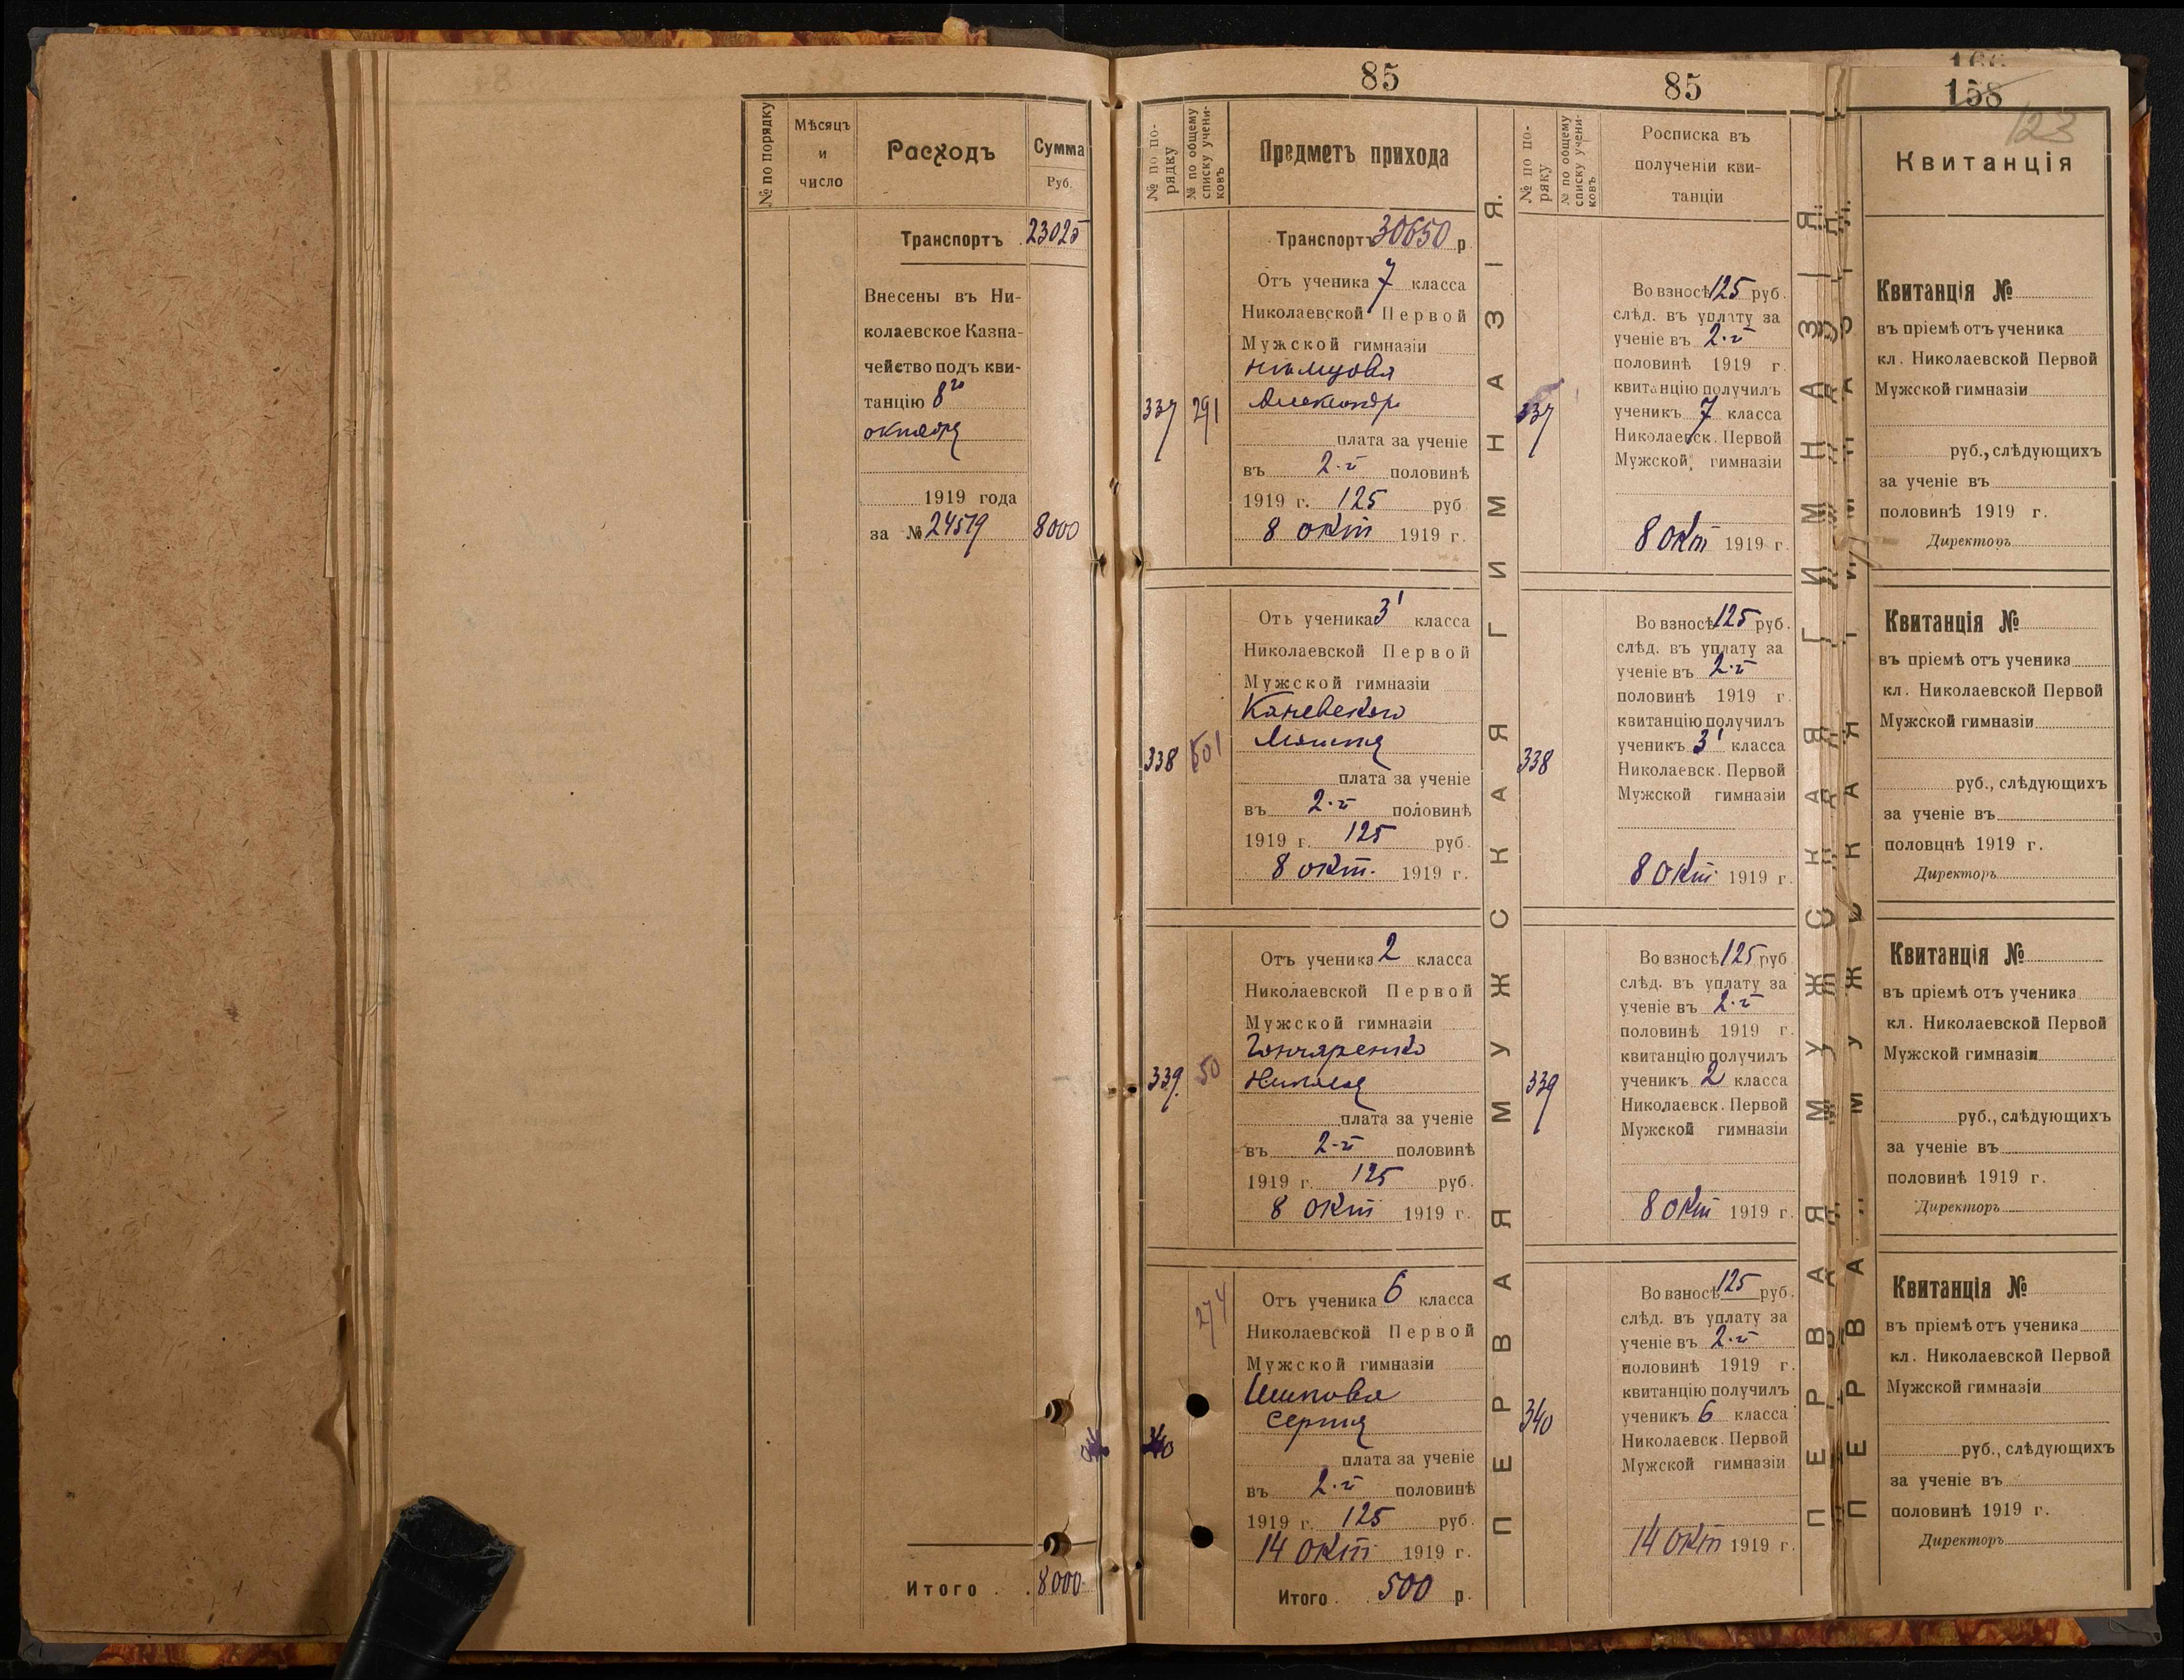 № по порядку
Мѣсяцъ
и
число
Расходъ
Сумма
Руб.
Транспортъ 23025
Внесены въ Ни-
колаевское Казна-
чейство подъ кви-
танцію 8го
октября
1919 года
за № 24519 8000
Итого . . 8000
85
№ по по-
рядку
№ по общему
списку учени-
ковъ
Предметъ прихода
Транспортъ 30650 р
Отъ ученика 7 класса
Николаевской Первой
Мужской гимназіи
Нѣмцова
Александр
337 291
плата за ученіе
въ 2-й половинѣ
1919 г. 125 руб
8 окт 1919 г.
Отъ ученика 3' класса
Николаевской Первой
Мужской гимназіи
Каневского
338 501
плата за ученіе
въ 2-й половинѣ
1919 г. 125 руб.
8 окт. 1919 г.
Отъ ученика 2 класса
Николаевской Первой
Мужской гимназіи
Гончаренко
339. 50 Николая
плата за ученіе
въ 2-й половинѣ
1919 г. 125 руб.
8 окт 1919 г.
274
Отъ ученика 6 класса
Николаевской Первой
Мужской гимназіи
Шипова
Сергія
340
плата за ученіе
въ 2-й половинѣ
1919 г. 125 руб.
14 окт 1919 г.
Итого . . 500 р.
ПЕРВАЯ МУЖСКАЯ ГИМНАЗІЯ.
85
№ по по-
ряку
№ по общему
списку учени-
ковъ
Росписка въ
полученіи кви-
танціи
Во взносѣ 125 руб.
слѣд. въ уплату за
ученіе въ 2-й
половинѣ 1919 г
квитанцію получилъ
337 ученикъ 7 класса
Николаевск. Первой
Мужской гимназіи
8 Окт 1919 г.
Во взносѣ 125 руб.
слѣд. въ уплату за
ученіе въ 2-й
половинѣ 1919 г
квитанцію получилъ
ученикъ 3' класса
338 Николаевск. Первой
Мужской гимназіи
8 Окт 1919 г.
Во взносѣ 125 руб
слѣд. въ уплату за
ученіе въ 2-й
половинѣ 1919 г.
квитанцію получилъ
339 ученикъ 2 класса
Николаевск. Первой
Мужской гимназіи
8 Окт 1919 г.
Во взносѣ 125 руб.
слѣд. въ уплату за
ученіе въ 2-й
половинѣ 1919 г.
квитанцію получилъ
340 ученикъ 6 класса
Николаевск. Первой
Мужской гимназіи
14 Окт 1919 г.
ПЕРВАЯ МУЖСКАЯ ГИМНАЗІЯ.
166
158
123
Квитанція
Квитанція №
въ пріемѣ отъ ученика
кл. Николаевской Первой
Мужской гимназіи
руб., слѣдующихъ
за ученіе въ
половинѣ 1919 г.
Директоръ
Квитанція №
въ пріемѣ отъ ученика
кл. Николаевской Первой
Мужской гимназіи
руб., слѣдующихъ
за ученіе въ
половцнѣ 1919 г.
Директоръ
Квитанція №
въ пріемѣ отъ ученика
кл. Николаевской Первой
Мужской гимназіи
руб., слѣдующихъ
за ученіе въ
половинѣ 1919 г.
Директоръ
Квитанція №
въ пріемѣ отъ ученика
кл. Николаевской Первой
Мужской гимназіи
руб., слѣдующихъ
за ученіе въ
половинѣ 1919 г.
Директоръ